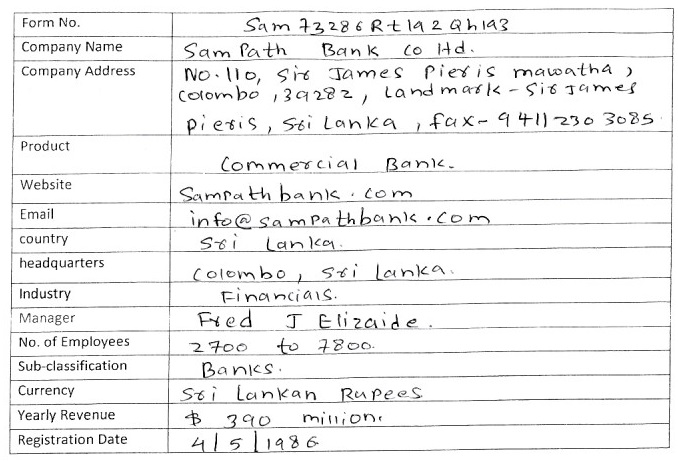 Form No. Sam73286Rt192Qh193
Company Name Sampath Bank co ltd.
Company Address No.110, Sir James Pieris mawatha,
colombo, 39282, Landmark - Sir James
Pieris, Sri Lanka, fax- 94112303085.
Product Commercial Bank.
Website Sampathbank.com
Email info@sampathbank.com
country Sri Lanka.
headquarters Colombo, Sri Lanka.
Industry Financials.
Manager Fred J Elizaide.
No. of Employees 2700 to 7800.
Sub-classification Banks.
Currency Sri Lankan Rupees
Yearly Revenue $ 390 million.
Registration Date 4/5/1986